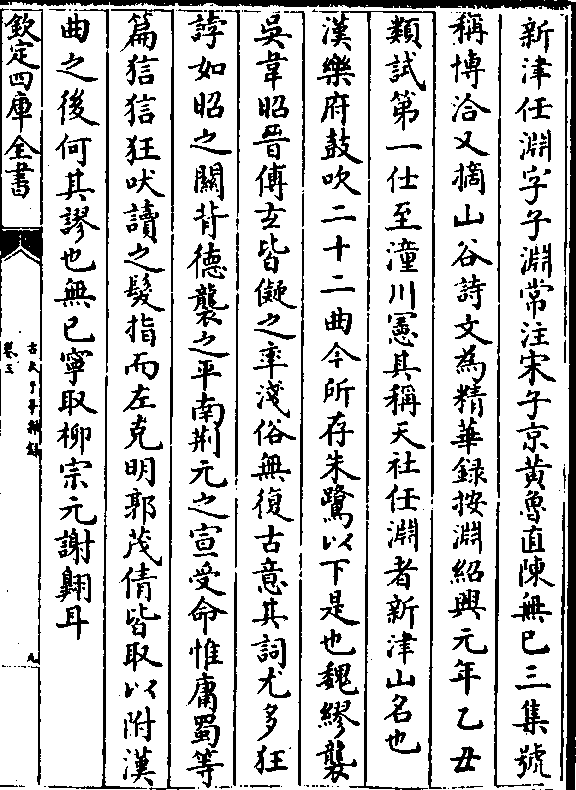 新津任淵字子淵常注宋子京黄魯直陳無已三集號
稱博洽又摘山谷詩文為精華録按淵紹興元年乙丑
類試第一仕至潼川憲其稱天社任淵者新津山名也
漢樂府鼓吹二十二曲今所存朱鷺以下是也魏繆襲
吳韋昭晉傅玄皆儗之率淺俗無復古意其詞尤多狂
誖如昭之關背德襲之平南荆元之宣受命惟庸蜀等
篇狺狺狂吠讀之髮指而左克明郭茂倩皆取以附漢
曲之後何其謬也無已寧取柳宗元謝翺耳
欽定四庫全書
卷三
九